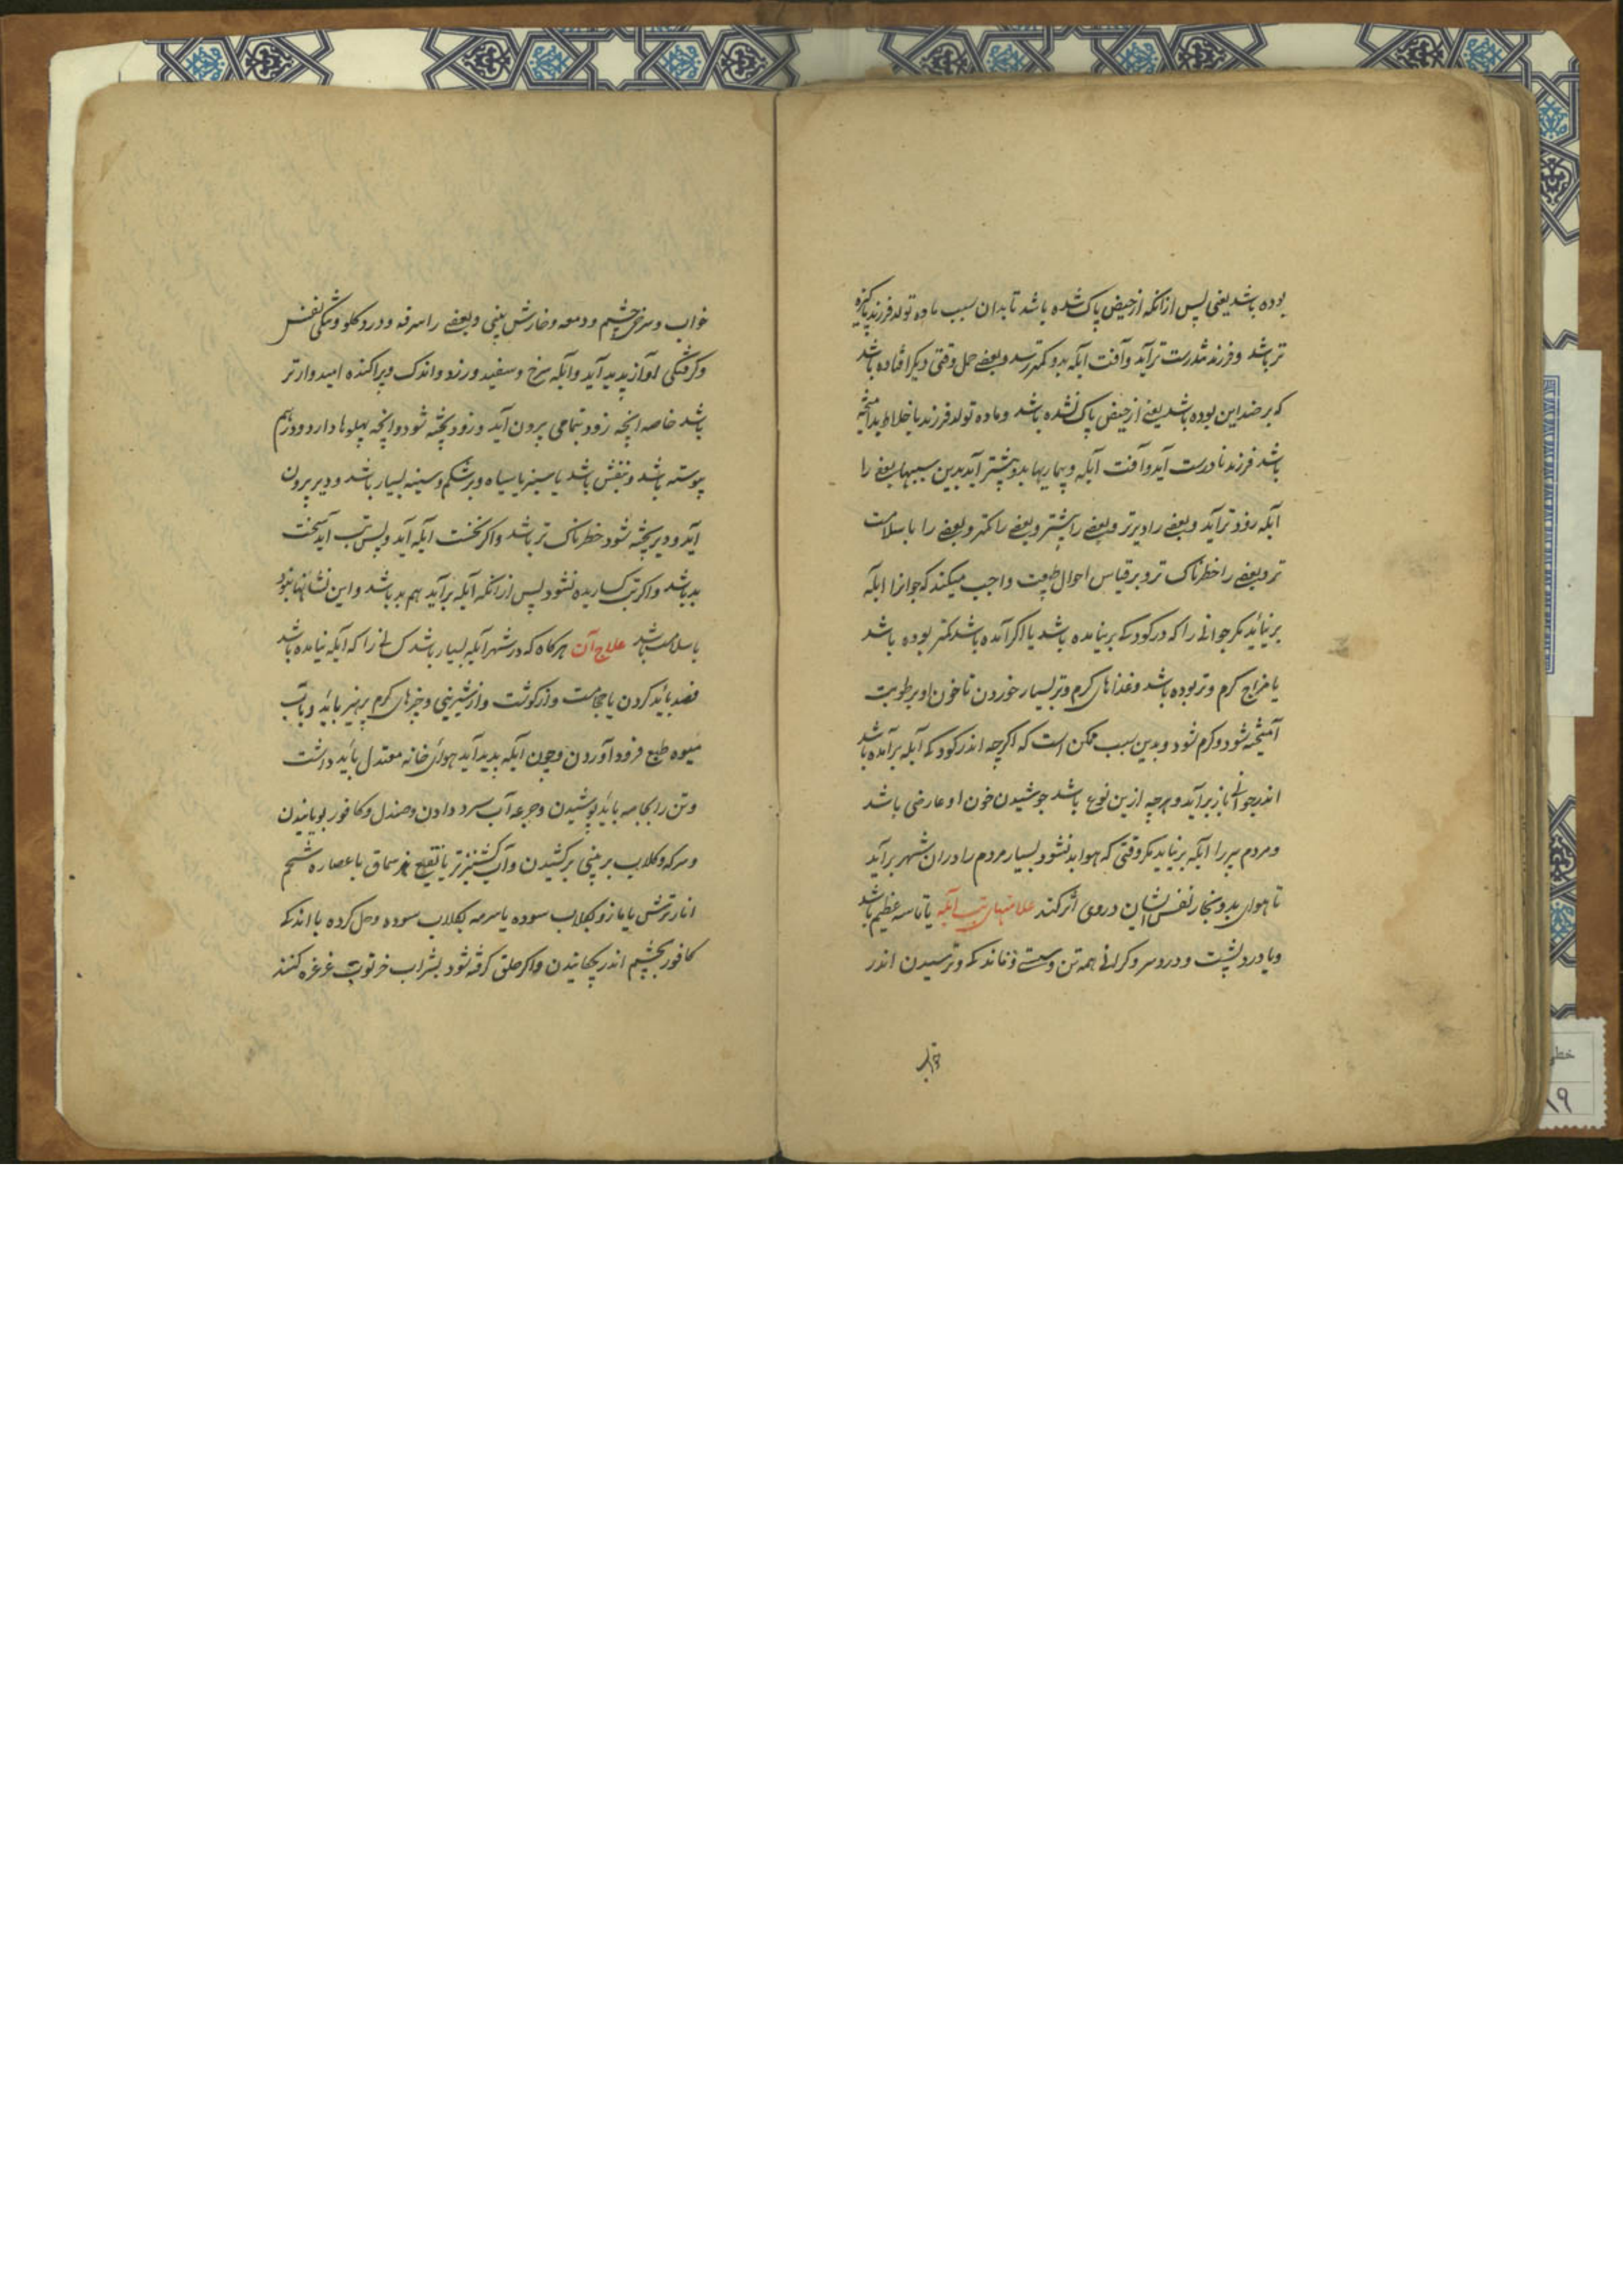 بوده باشد یعنی پس ازانکه از حیض پاک شده باشد تا بدان سبب ماده تولد فرزند پاکیزه
تر باشد و فرزند تندرست تر آید و آفت آبله بدو کمتر رسد و بعضے حمل وقتی دیگر افتاده باشد
که بر ضد این بوده باشد یعنے از حیض پاک نشده باشد و ماده تولد فرزند با خلاط بد آمیخته
باشد فرزند نادرست آید و آفت آبله و بیماریها بدو بیشتر آید بدین سببها بعضے را
آبله زود تر آید و بعضے را دیرتر و بعضے را بیشتر و بعضے را کمتر و بعضے را با سلامت
تر و بعضے را خطرناک تر و بر قیاس احوال طبیعت واجب میکند که جوانرا ابله
بر نیاید مکر جوانی را که در کودکے بر نیامده باشد یا اکر آمده باشد کمتر بوده باشد
یا مزاج کرم و تر بوده باشد و غذاهای کرم و تر بسیار خوردن تا خون او بر طوبت
آمیخته شود و کرم شود و بدین سبب ممکن است که اکرچه اندر کودکے آبله برآمده باشد
اندر جوانی باز برآید و هرچه ازین نوع باشد جوشیدن خون او عارضی باشد
و مردم پیر را آبله بر نیاید مکر وقتی که هوا بد شود و بسیار مردم را دران شهر برآید
تا هوای بد و بخار نفس ایشان در وی اثر کند علامتهای تب آبله یا تاسه عظیم باشد
و یا درد پشت و درد سر و کرانی همه تن و سستے و ترسیدن اندر
خواب
خواب و سرخی چشم و دمعه و خارش بینی و بعضے را سرفه و درد کلو و تنکی نفس
و کرفتکی آواز پدید آید و آبله سرخ و سفید و زرد و اندک و پراکنده امیدوارتر
باشد خاصه انچه زود بتمامی بیرون آید و زود پخته شود و انچه پهلوها دارد و درهم
پیوسته باشد و بنفش باشد یا سبز یا سیاه و بر شکم و سینه بسیار باشد و دیر بیرون
آید و دیر پخته شود خطرناک تر باشد و اکر نخست آبله آید و پس تب آید سخت
بد باشد و اکر تب کساریده نشود پس ازانکه آبله برآید هم بد باشد و این نشانها نبود
با سلامت باشد علاج آن هرکاه که در شهر آبله بسیار باشد کسانی را که آبله نیامده باشد
فصد باید کردن یا حجامت و از کوشت و از شیرینی و چیزهای کرم پرهیز باید و بآب
میوه طبع فرود آوردن و چون آبله پدید آید هوای خانه معتدل باید داشت
و تن را بجامه باید پوشیدن و جرعه آب سرد دادن و صندل و کافور بویانیدن
و سرکه و کلاب بر بینی برکشیدن و آب کشنیز تر یا نقیع سماق با عصاره شحم
انار ترش یا مازو بکلاب سوده یا سرمه بکلاب سوده و حل کرده با اندکے
کافور بچشم اندر چکانیدن و اکر حلق کرفته شود بشراب خرتوت غرغره کنند
خطی
۱۹